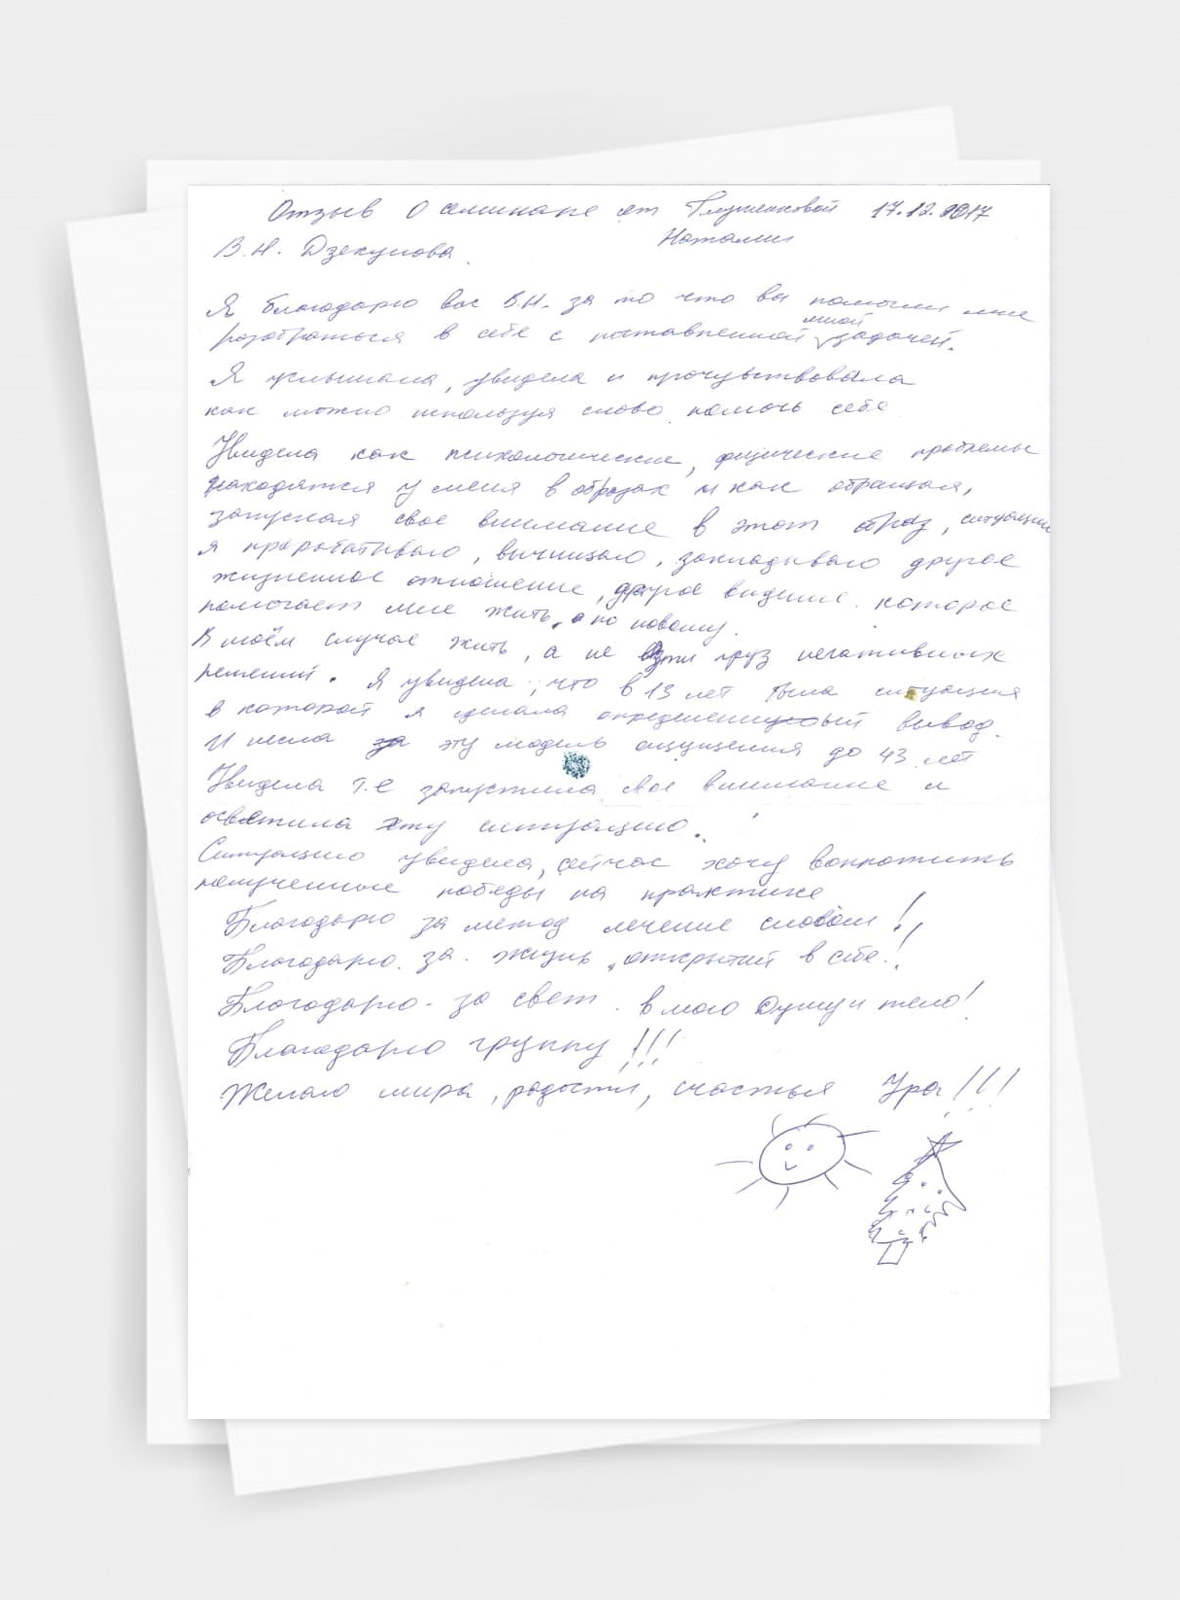 Отзыв о семинаре от Глушенковой 17.12.2017
В.Н. Дзекунова. Наталии
Я благодарю вас В.Н. за то что вы помогли мне
разобраться в себе с поставленной мной задачей.
Я услышала, увидела и прочувствовала
как можно используя слово помочь себе
Увидела как психологические, физические проблемы
находятся у меня в образах и как обращая,
запуская свое внимание в этот образ, ситуации
я прорабатываю, вычищаю, закладываю другое
жизненное отношение, другое видение. которое
помогает мне жить, а по новому.
В моём случае жить, а не груз негативных
решений. Я увидела, что в 13 лет была ситуация
в которой я сделала определенный вывод.
И несла эту модель ощущения до 43 лет
Увидела т.е запустила свое внимание и
осветила эту ситуацию.
Ситуацию увидела, сейчас хочу воплотить
полученные победы на практике
Благодарю за метод лечение словом!
Благодарю. за. жизнь, открытий в себе.!
Благодарю - за свет. в мою Душу и тело!
Благодарю группу!!!
Желаю мира, радости, счастья Ура!!!